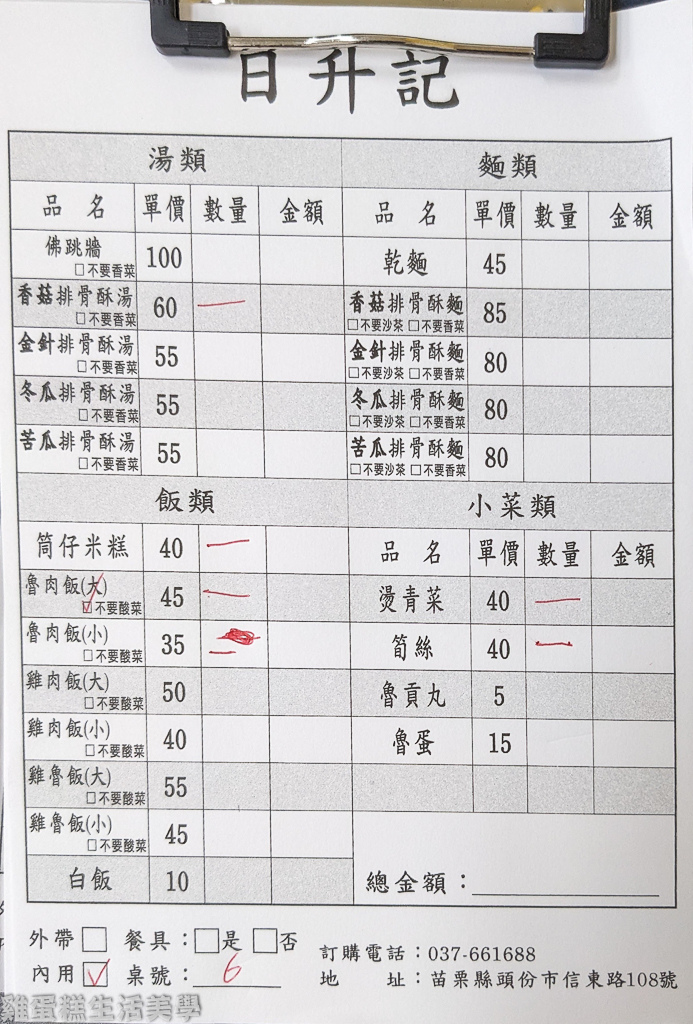 日升記
湯類 麵類
品名 單價 數量 金額 品名 單價 數量 金額
佛跳牆 □不要香菜 100 乾麵 45
香菇排骨酥湯 □不要香菜 60 一 香菇排骨酥麵 □不要沙茶 □不要香菜 85
金針排骨酥湯 □不要香菜 55 金針排骨酥麵 □不要沙茶 □不要香菜 80
冬瓜排骨酥湯 □不要香菜 55 冬瓜排骨酥麵 □不要沙茶 □不要香菜 80
苦瓜排骨酥湯 □不要香菜 55 苦瓜排骨酥麵 □不要沙茶 □不要香菜 80
飯類 小菜類
筒仔米糕 40 一 品名 單價 數量 金額
魯肉飯(大) ☑不要酸菜 45 一 燙青菜 40 一
魯肉飯(小) □不要酸菜 35 一 筍絲 40 一
雞肉飯(大) □不要酸菜 50 魯貢丸 5
雞肉飯(小) □不要酸菜 40 魯蛋 15
雞魯飯(大) □不要酸菜 55
雞魯飯(小) □不要酸菜 45
白飯 10 總金額：
外帶□ 餐具：□是 □否 訂購電話：037-661688
內用☑ 桌號：6 地址：苗栗縣頭份市信東路108號
雞蛋糕生活美學